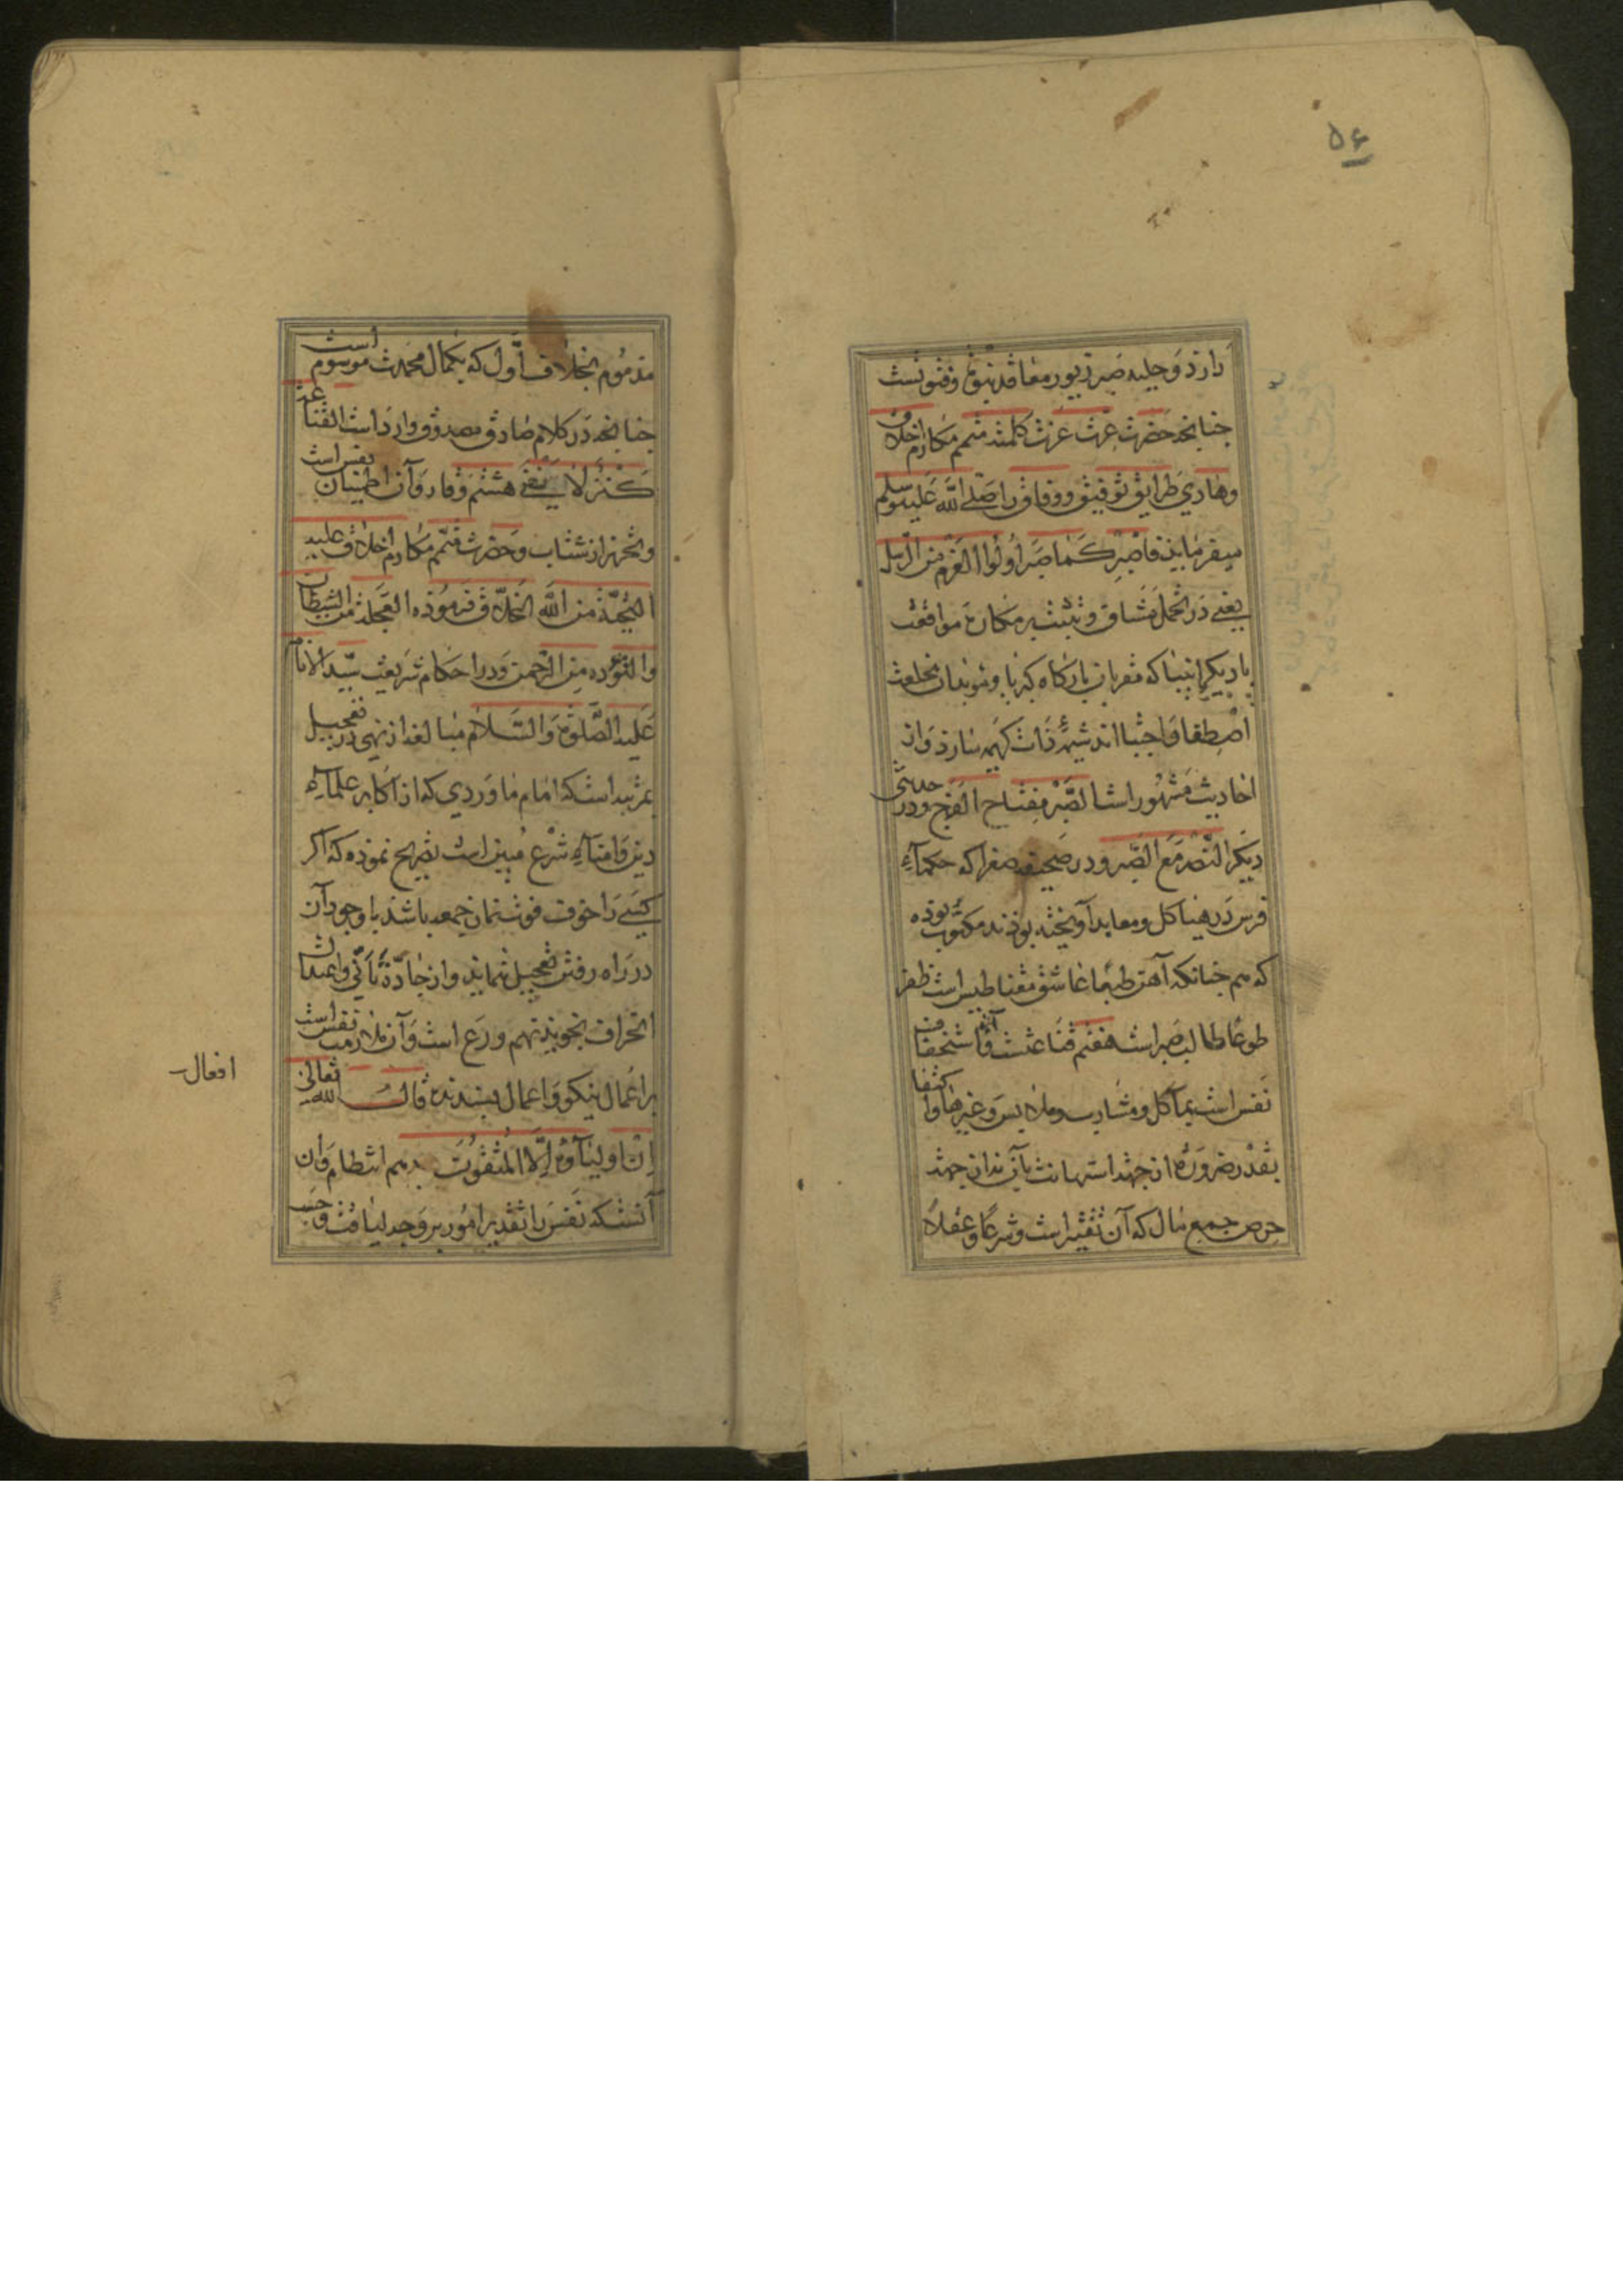 ۵۶
دارذ و حلیه صبر زیور معاقد نبوّة و فتوتست
جنانجه حضرت عزت عزت کلمته متمم مکارم اخلاق
وهادی طرایق توفیق و وفاق را صلی الله علیه وسلم
میفرمایذ فاصبر کما صبر اولوا العزم من الرسل
یعنی در تحمل مشاق و تثبت بر مکاره موافقت
با دیکر انبیا که مقربان بارکاه کبریا و مؤیدان بخلعت
اصطفا و اجتبا اند شیمهٔ ذات کریمه سازد واز
احادیث مشهور است الصّبر مفتاح الفرج و در حدیثی
دیکر النّصر مع الصّبر و در صحیفه صفرا که حکمآء
فرس در هیاکل و معابد آویخته بوذند مکتوب بوذه
که هم جنانکه آهن طبعا عاشق مغناطیس است ظفر
طوعا طالب صبر است هفتم قناعتست و آن استخفاف
نفس است بمآکل و مشارب و ملابس و غیرها و اکتفا
بقدر ضرورة از جهة استهانت بآن نه از جهة
حرص جمع مال که آن تقتیر است و شرعًا و عقلاً
مذموم بخلاف اوّل که بکمال محمدت موسوم است
جنانجه در کلام صادق مصدوق وارد است القناعة
کنز لا یفنی هشتم وقار و آن اطمینان نفس است
وتحرز از شتاب و حضرت متمّم مکارم اخلاق علیه
التحیّة من الله الخلّاق فرموذه العجلة من الشیطان
والتؤده من الرّحمن و در احکام شریعت سیّد الانام
علیه الصّلوة والسّلام مبالغه از نهی در تعجیل
بمرتبه است که امام ماوردی که از اکابر علمآء
دین و امنآء شرع مبین است تصریح نموذه که اکر
کسی را خوف فوت نماز جمعه باشذ با وجود آن
در راه رفتن تعجیل ننمایذ و از جادّهٔ تأنّی و اعتدال
انحراف نجویذ نهم ورع است و آن ملازمت نفس است
بر اعمال نیکو و اعمال بسندیده قال الله تعالی
افعال
ان اولیآؤه الّا المتّقون دهم انتظام و آن
آنست که نفس را تقدیر امور بر وجه لیاقت و حسب